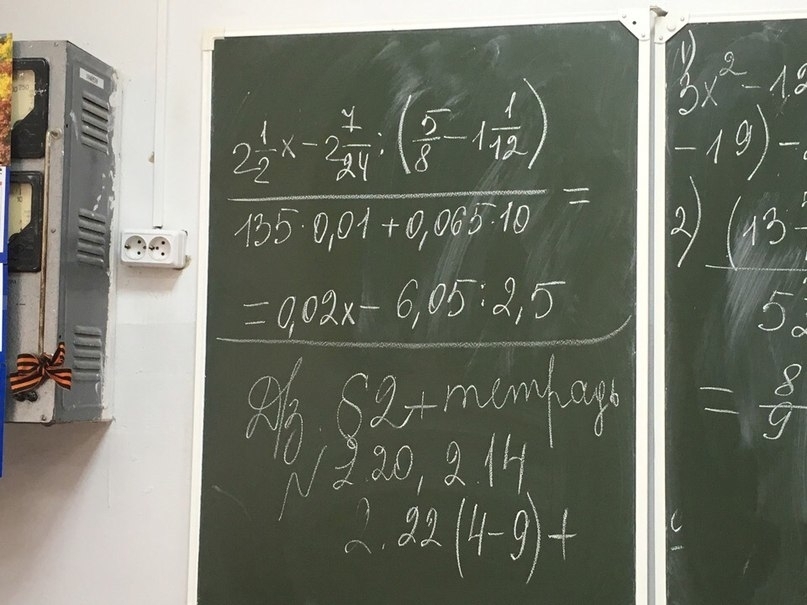 2 1/2 x - 2 7/24 : (5/8 - 1 1/12)
135 · 0,01 + 0,065 · 10
=
= 0,02x - 6,05 : 2,5
Д/з. §2 + тетрадь
N 2.20, 2.14
2.22 (4-9) +
1)
3x² - 12
- 19) -
2) (13
52
= 8/9